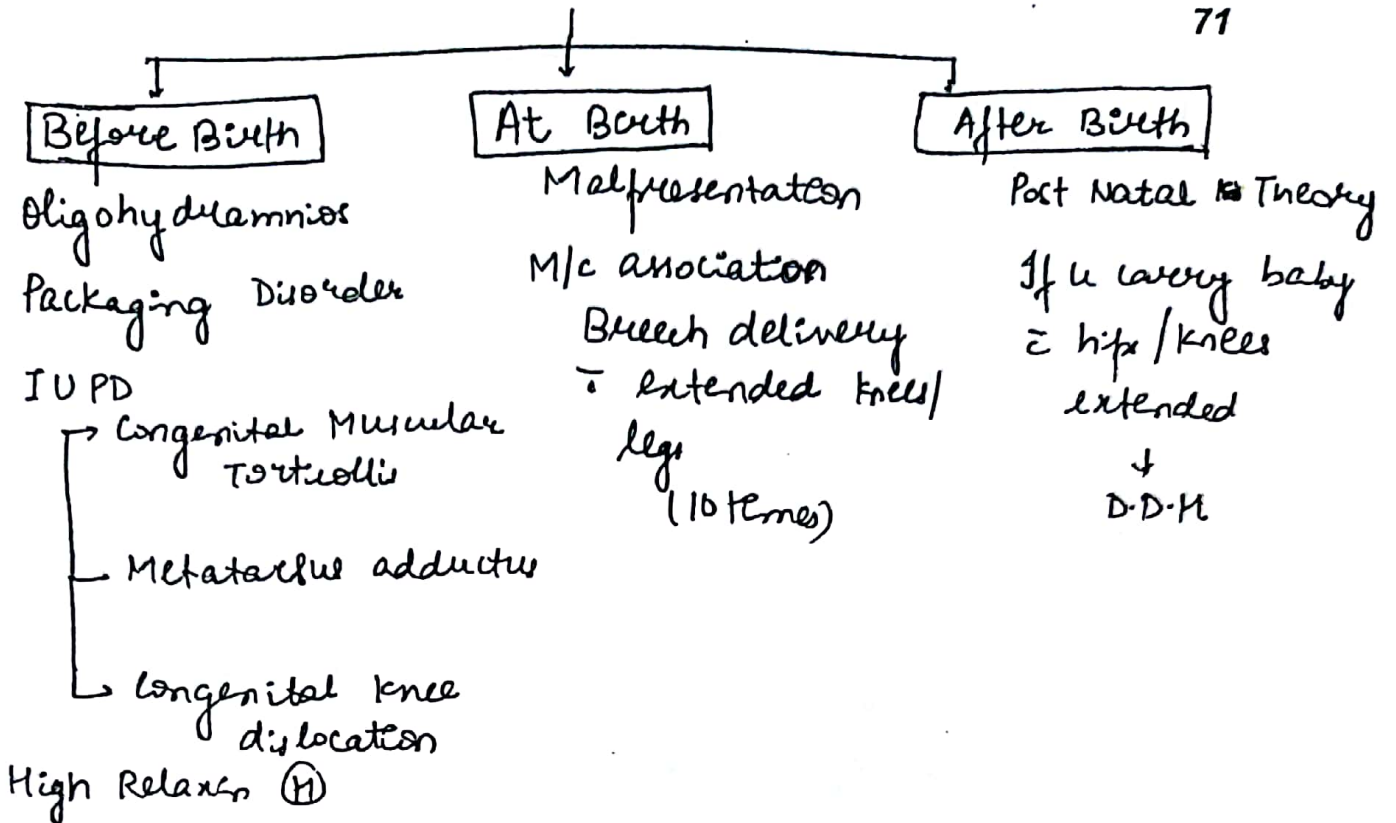 71
Before Birth
Oligohydramnios
Packaging Disorder
IUPD
Congenital Muscular
Torticollis
Metatarsus adductus
Congenital knee
dislocation
High Relaxin Ⓗ
At Birth
Malpresentation
M/c association
Breech delivery
c̄ extended knees/
legs
(10 times)
After Birth
Post Natal Theory
If u carry baby
c̄ hips/knees
extended
↓
D.D.H